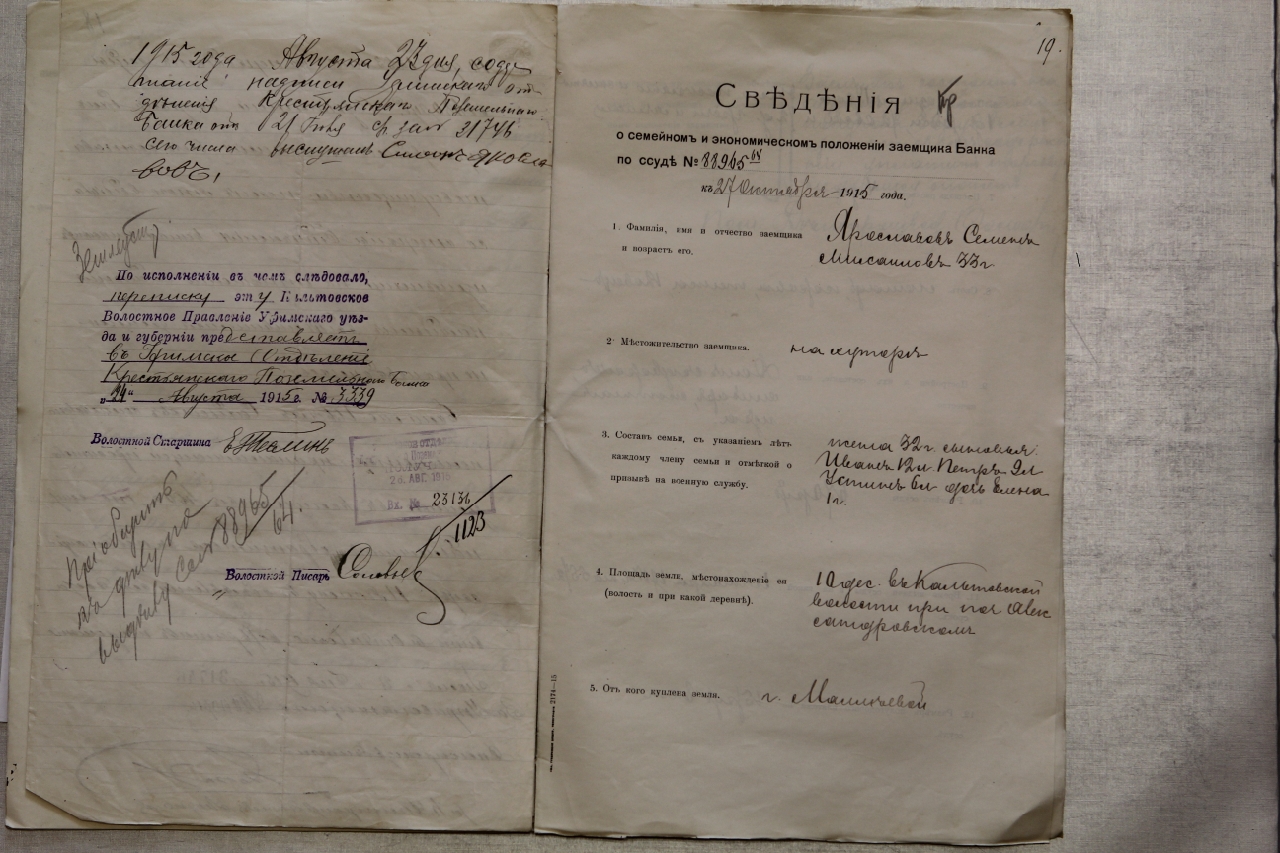 1915 года Августа 23 дня, содер
жание надписи Уфимскаго от
дѣленія Крестьянскаго Поземельнаго
Банка отъ 21 Іюля с/г за № 31746
сего числа выслушалъ Семенъ Яросла
вовъ,
По исполненіи въ чемъ слѣдовало,
переписку эту Кальтовское
Волостное Правленіе Уфимскаго уѣз-
да и губерніи представляетъ
въ Уфимское Отдѣленіе
Крестьянскаго Поземельнаго Банка
„24" Августа 1915 г. № 3339
Волостной Старшина
26. АВГ. 1915
Вх. № 23136
1123
Пріобщить
къ дѣлу по
выдѣлу ссуд 88965/64
Волостной Писарь Соловьев
19.
Свѣдѣнія
о семейномъ и экономическомъ положеніи заемщика Банка
по ссудѣ № 88965/64
къ 27 Октября 1915 года.
1. Фамилія, имя и отчество заемщика
и возрастъ его.
Ярославовъ Семенъ
Мисаиловъ 33 г.
2. Мѣстожительство заемщика.
на хуторѣ
3. Составъ семьи, съ указаніемъ лѣтъ
каждому члену семьи и отмѣткой о
призывѣ на военную службу.
жена 32 г. сыновья:
Иванъ 12 л. Петръ 9 л
Устинъ 6 л дочь Елена
1 г.
4. Площадь земли, мѣстонахожденіе ея
(волость и при какой деревнѣ).
10 дес. въ Кальтовской
волости при пос Алек
сандровскомъ
5. Отъ кого куплена земля.
г.
2174—15